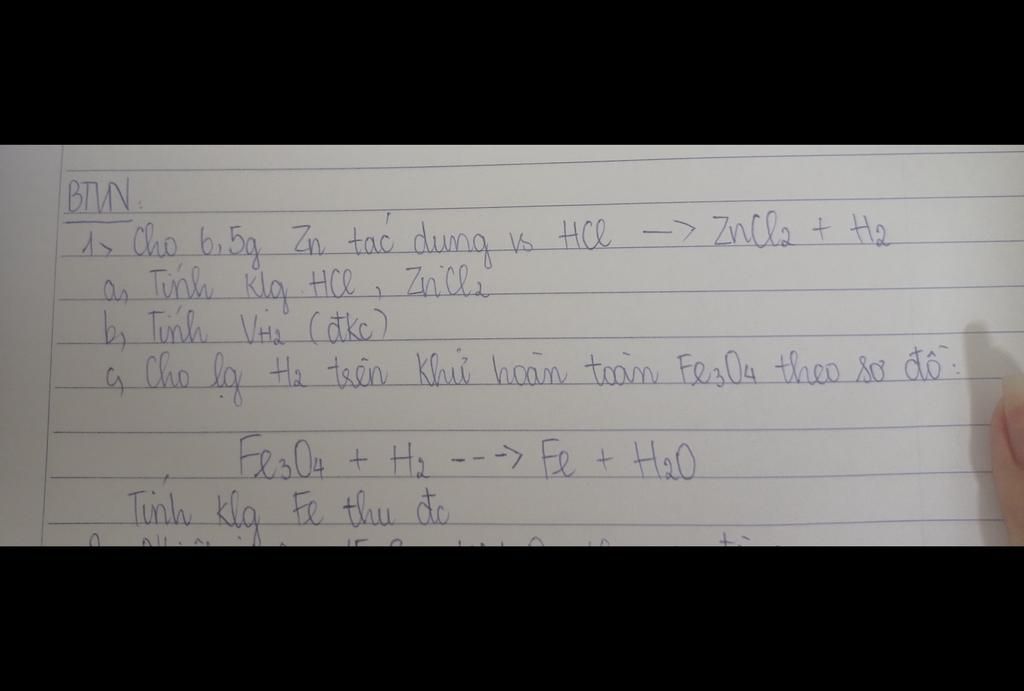 BTVN:
1, Cho 6,5g Zn tác dung vs HCl -> ZnCl2 + H2
a, Tính klg HCl, ZnCl2
b, Tính VH2 (đkc)
c, Cho lg H2 trên khử hoàn toàn Fe3O4 theo sơ đồ:
Fe3O4 + H2 ---> Fe + H2O
Tính klg Fe thu đc